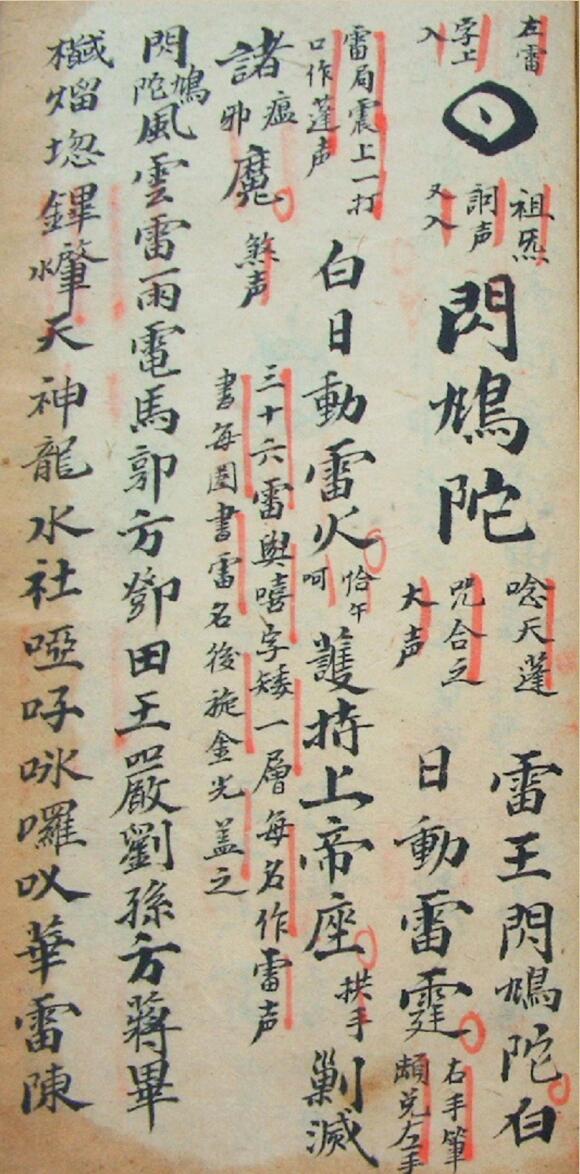 左雷
字上
入
祖炁
詞声
又入
閃鳩陀
唸天蓬
咒合之
大声
雷王閃鳩陀白
日動雷霆
右手筆
兌左手
雷局震上一打
口作蓬声
白日動雷火
恰午
呵
護持上帝座
拱手
剿滅
諸瘟邪魔
煞声
三十六雷與嘻字矮一層每名作雷声
書每圈書雷名後旋金光盖之
閃鳩陀風雲雷雨電馬郭方鄧田王嚴劉孫方蔣畢
熘鏎肇水天神龍水社啞吇咏囉㕥華雷陳